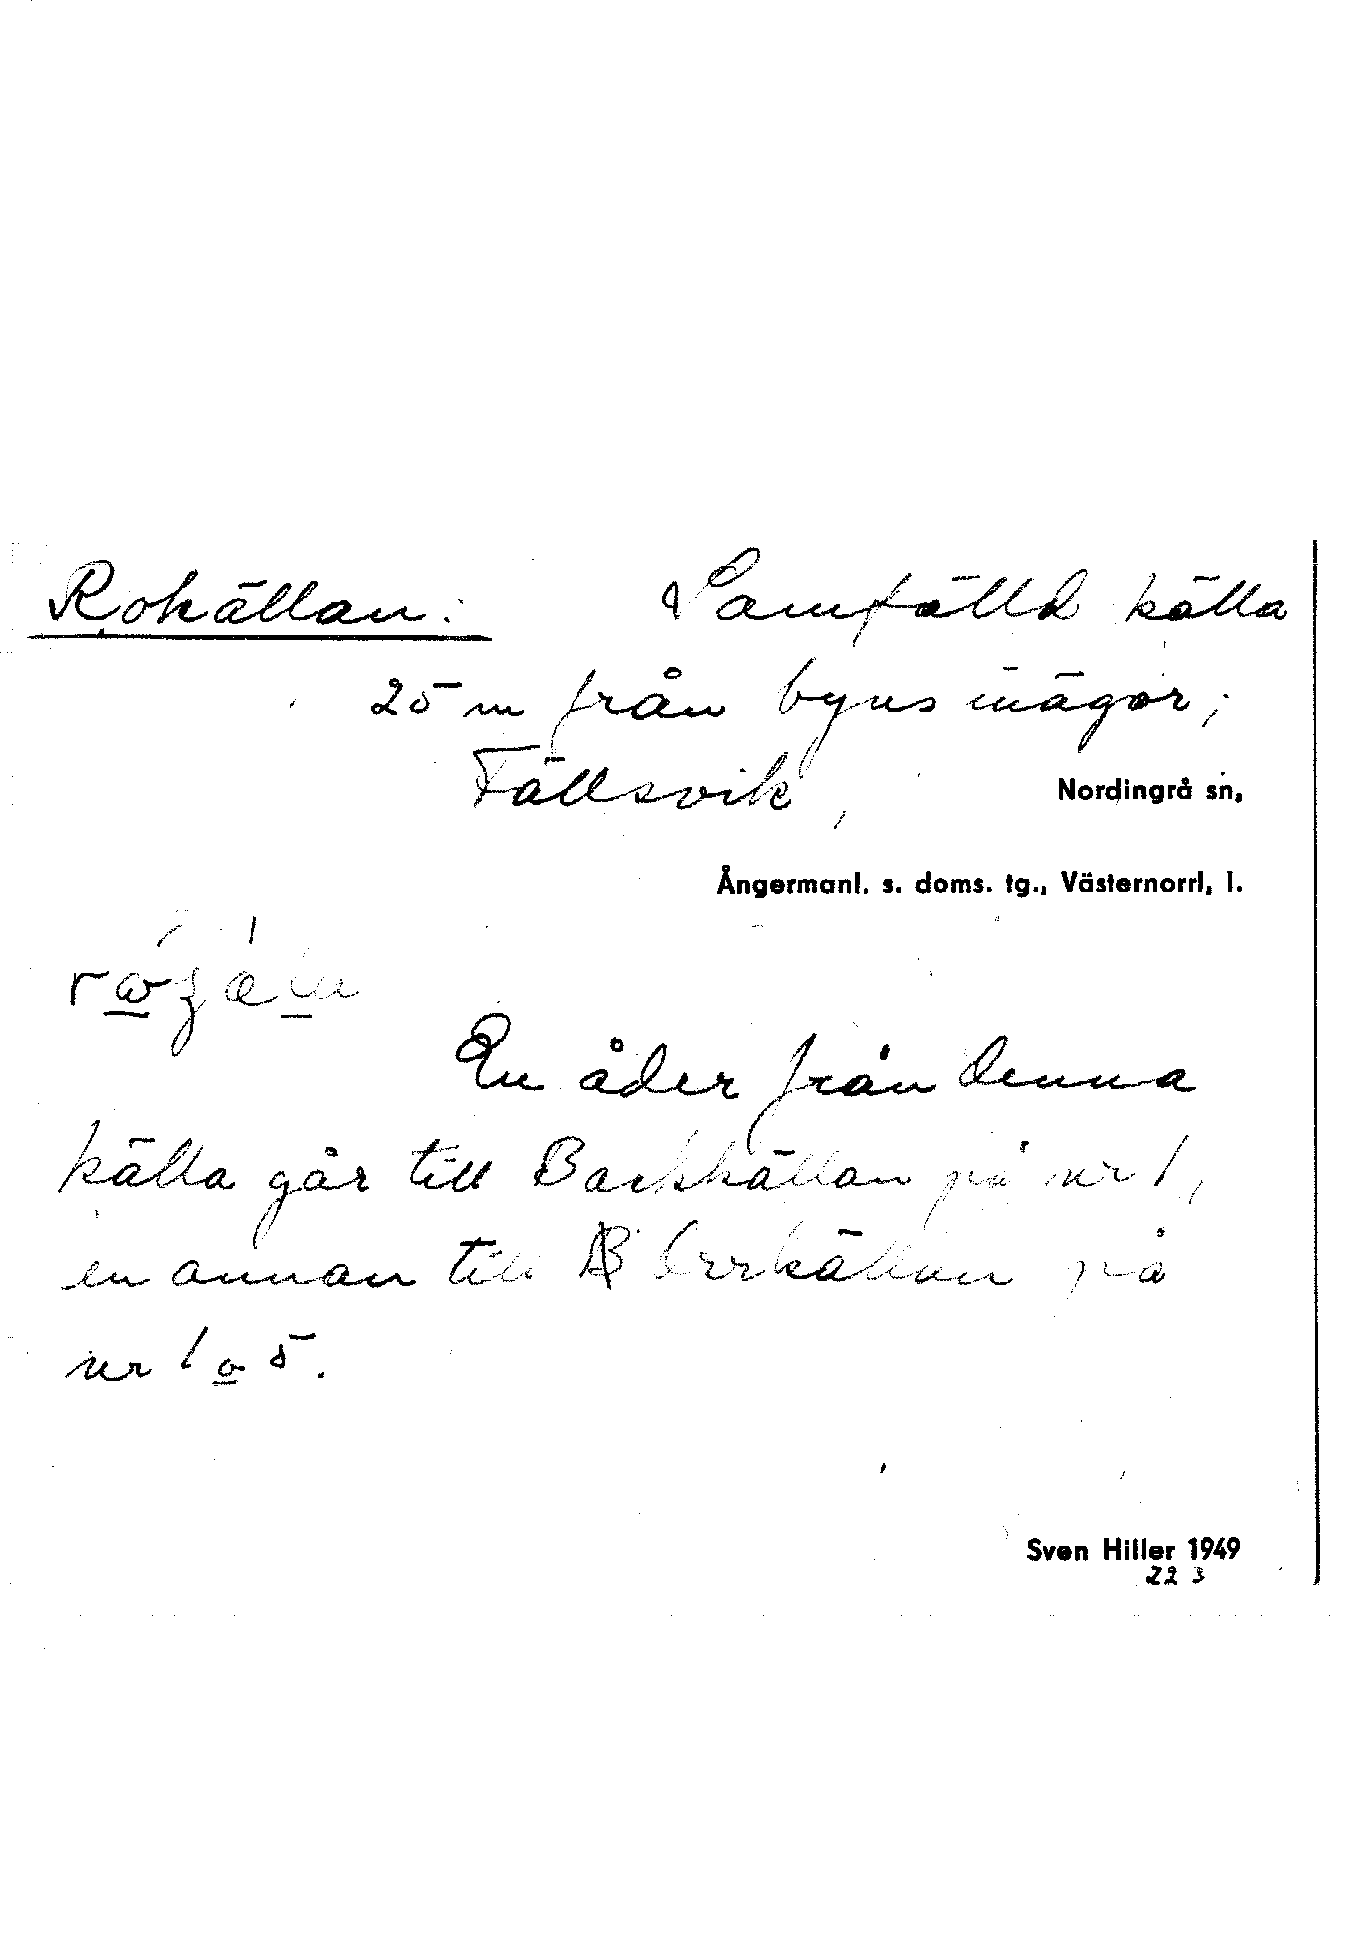 Rokällan: Samfälld källa
25 m från byns inägor;
Fällsvik, Nordingrå sn,
Ångermanl. s. doms. tg., Västernorrl, l.
En åder från denna
källa går till Backkällan på nr 1,
en annan till Orrkällan på
nr 1 o 5.
Sven Hiller 1949
22 3